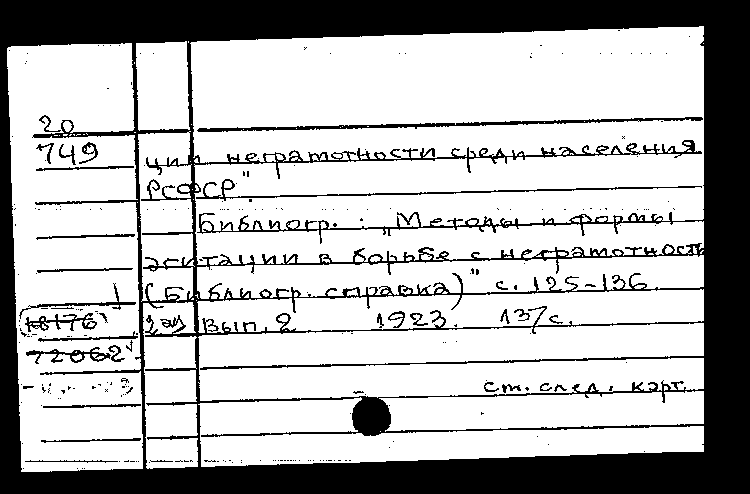 20
749
ции неграмотности среди населения
РСФСР".
Библиогр. : „Методы и формы
агитации в борьбе с неграмотность
(Библиогр. справка)" с. 125-136.
18176 2 экз Вып. 2 1923. 137 с.
72062
ст. след. карт.